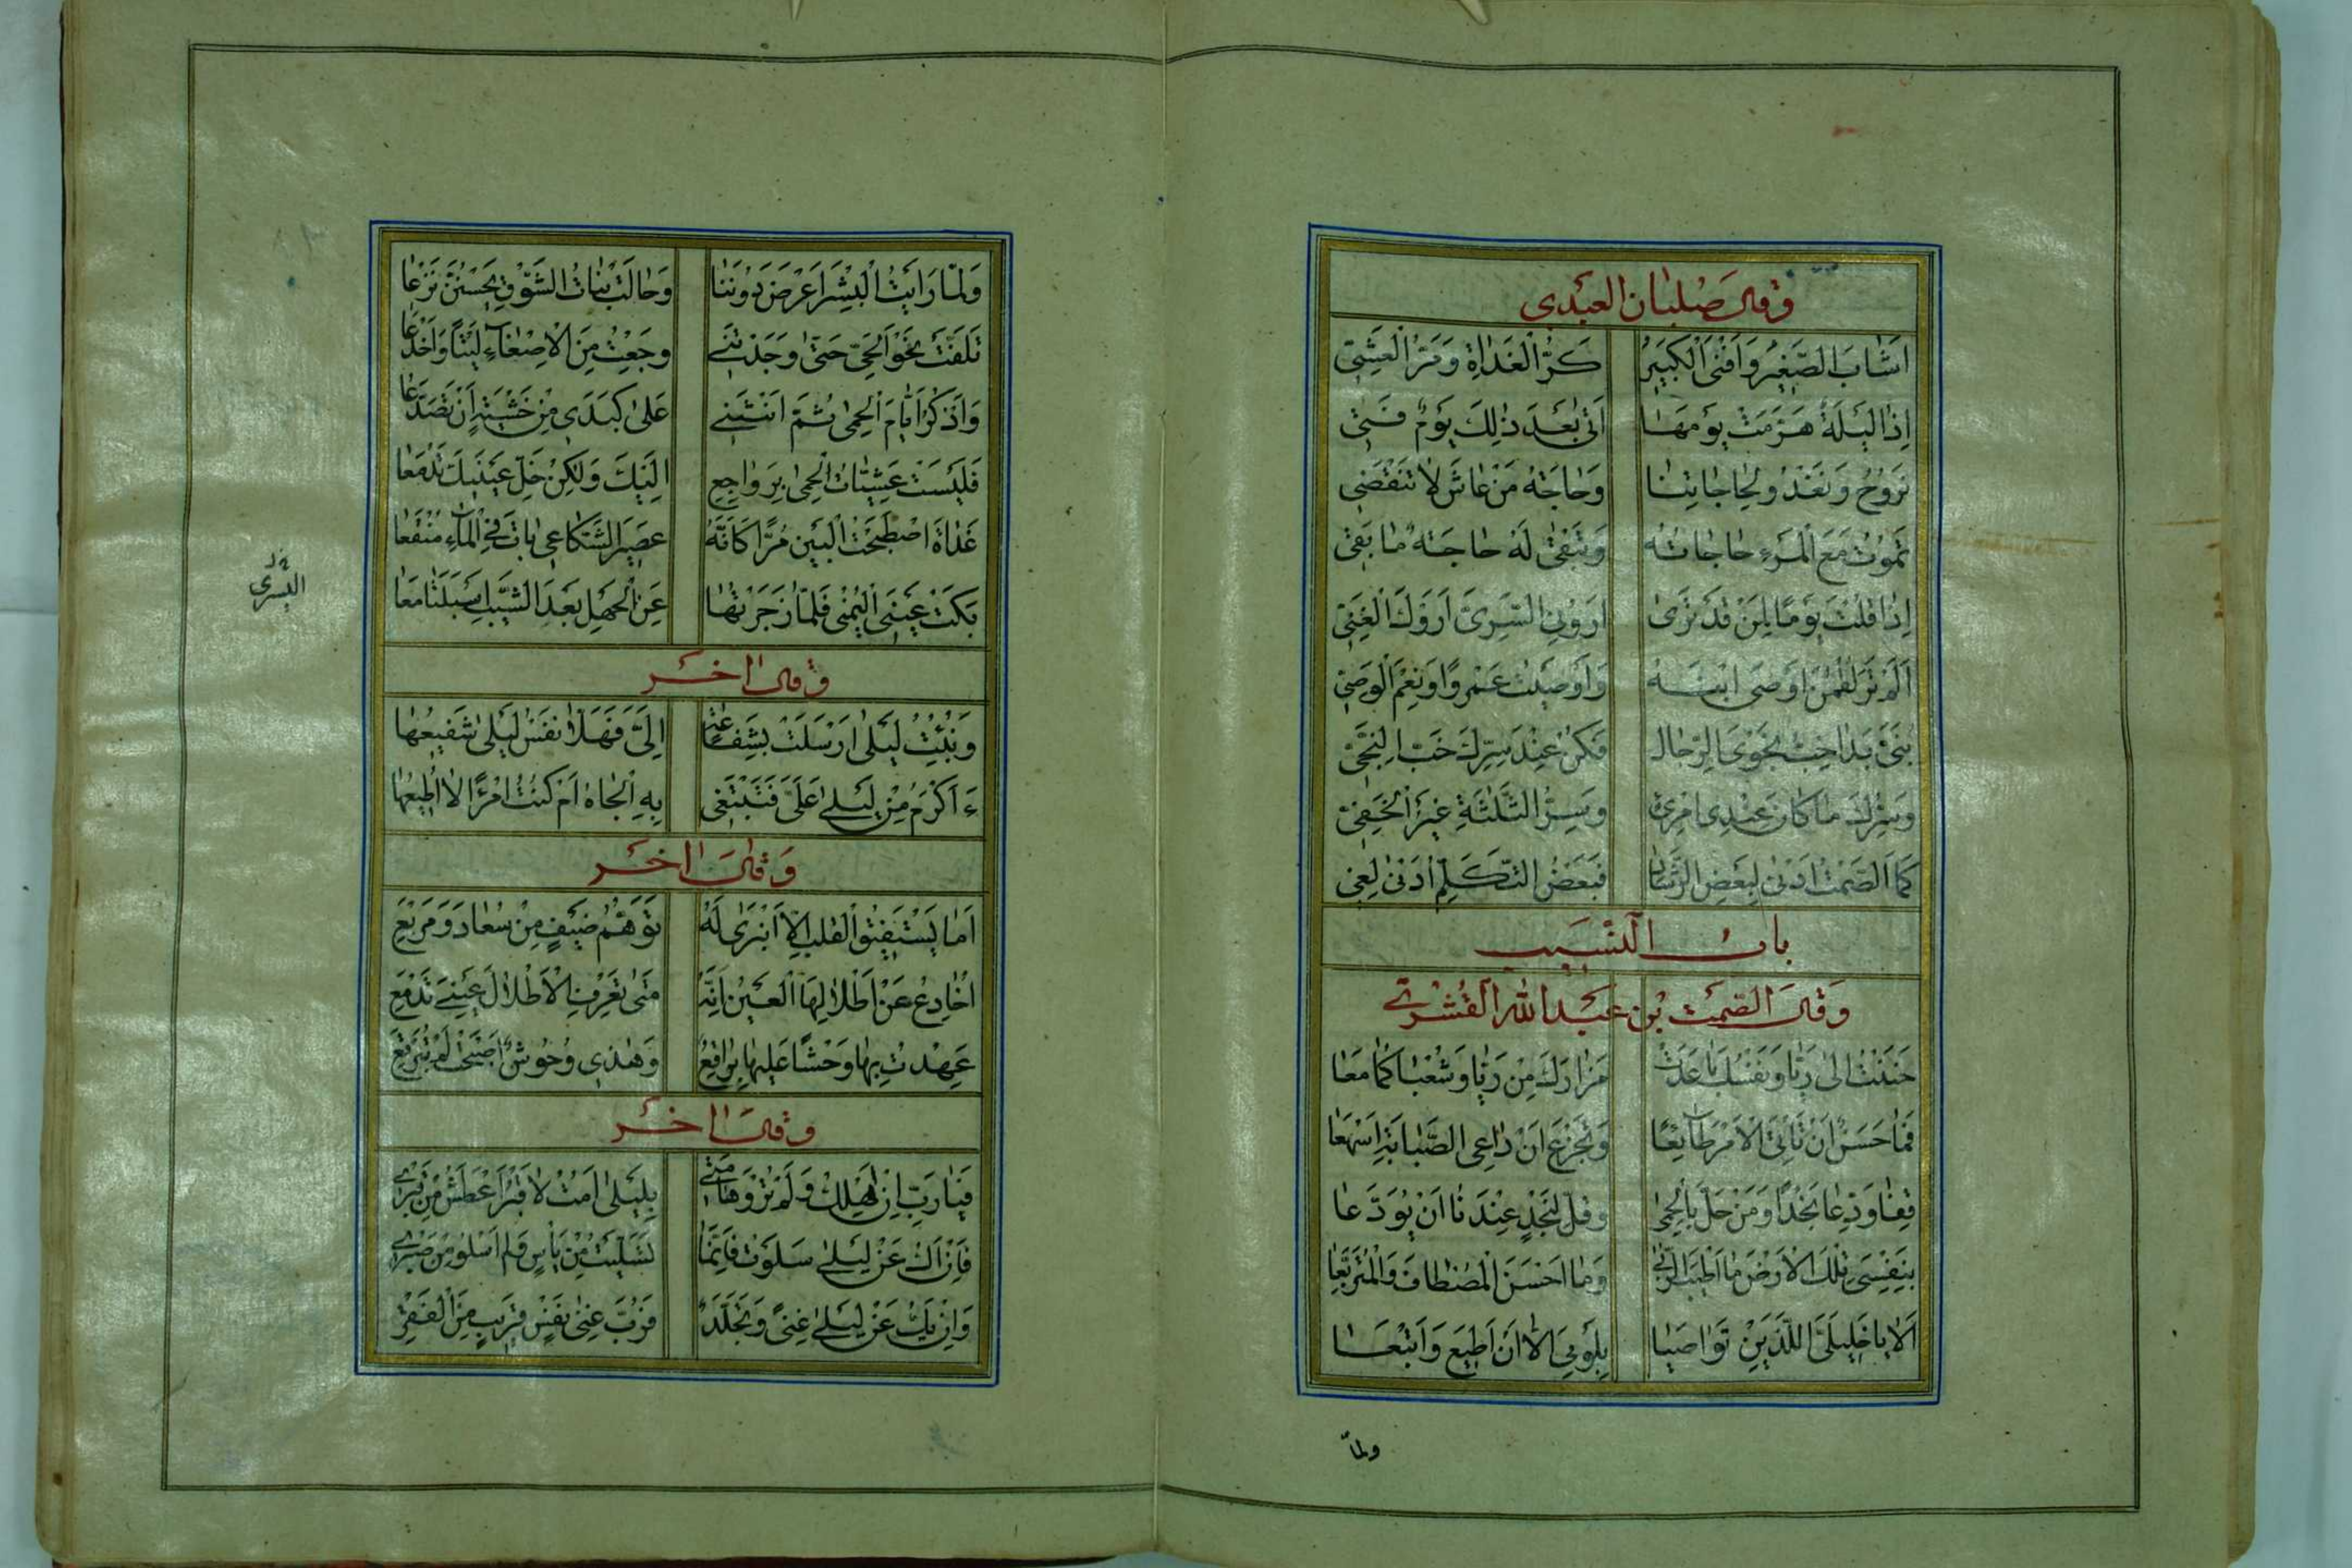 وقال صلبان العبدى
اَشَابَ الصَّغِيْرَ وَاَفْنَى الْكَبِيْرَ كَرُّ الْغَدَاةِ وَمَرُّ الْعَشِيّ
اِذَا لَيْلَةٌ هَرَّمَتْ يَوْمَهَا اَتٰى بَعْدَ ذٰلِكَ يَوْمٌ فَتِيّ
نَرُوْحُ وَنَغْدُو لِحَاجَاتِنَا وَحَاجَةُ مَنْ عَاشَ لَا تَنْقَضِي
تَمُوْتُ مَعَ الْمَرْءِ حَاجَاتُهُ وَتَبْقٰى لَهُ حَاجَةٌ مَا بَقِي
اِذَا قُلْتَ يَوْمًا لِمَنْ قَدْ تَرٰى اَرُوْنِي السَّرِيَّ اَرَوْكَ الْغَنِيّ
اَلَمْ تَرَ لُقْمٰنَ اَوْصَى ابْنَهُ وَاَوْصَيْتُ عَمْرًوا وَنِعْمَ الْوَصِيّ
بُنَيَّ بَدَا خِبُّ نَجْوَى الرِّجَالِ فَكُنْ عِنْدَ سِرِّكَ خَبَّ النَّجِيّ
وَسِرُّكَ مَا كَانَ عِنْدَ امْرِئٍ وَسِرُّ الثَّلٰثَةِ غَيْرُ الْخَفِيّ
كَمَا الصَّمْتُ اَدْنٰى لِبَعْضِ الرَّشَادِ فَبَعْضُ التَّكَلُّمِ اَدْنٰى لِغِي
بابُ النَّسِيبِ
وَقَالَ الصِّمَّةُ بْنُ عَبْدِ اللّٰهِ الْقُشَيْرِيّ
حَنَنْتَ اِلٰى رَيَّا وَنَفْسُكَ بَاعَدَتْ مَزَارَكَ مِنْ رَيَّا وَشَعْبَاكُمَا مَعَا
فَمَا حَسَنٌ اَنْ تَاْتِيَ الْاَمْرَ طَائِعًا وَتَجْزَعَ اَنْ دَاعِي الصَّبَابَةِ اَسْمَعَا
قِفَا وَدِّعَا نَجْدًا وَمَنْ حَلَّ بِالْحِمٰى وَقَلَّ لِنَجْدٍ عِنْدَنَا اَنْ يُوَدَّعَا
بِنَفْسِيَ تِلْكَ الْاَرْضُ مَا اَطْيَبَ الرُّبٰى وَمَا اَحْسَنَ الْمُصْطَافَ وَالْمُتَرَبَّعَا
اَلَا يَا خَلِيْلَيَّ اللَّذَيْنِ تَوَاصَيَا بِلَوْمِيَ اِلَّا اَنْ اُطِيْعَ وَاَتْبَعَا
ولمّا
وَلَمَّا رَاَيْتُ الْبِشْرَ اَعْرَضَ دُوْنَنَا وَحَالَتْ بَنَاتُ الشَّوْقِ يَحْسِنَّ نُزَّعَا
تَلَفَّتُّ نَحْوَ الْحَيِّ حَتّٰى وَجَدْتُنِي وَجِعْتُ مِنَ الْاِصْغَاءِ لِيْتًا وَاَخْدَعَا
وَاَذْكُرُ اَيَّامَ الْحِمٰى ثُمَّ اَنْثَنِي عَلٰى كَبِدِي مِنْ خَشْيَةٍ اَنْ تَصَدَّعَا
فَلَيْسَتْ عَشِيَّاتُ الْحِمٰى بِرَوَاجِعٍ اِلَيْكَ وَلٰكِنْ خَلِّ عَيْنَيْكَ تَدْمَعَا
غَدَاةَ اصْطَبَحْتُ الْبَيْنَ مُرًّا كَاَنَّهُ عَصِيْرُ الشُّكَاعٰى بَاتَ فِي الْمَاءِ مُنْقَعَا
بَكَتْ عَيْنِيَ الْيُمْنٰى فَلَمَّا زَجَرْتُهَا عَنِ الْجَهْلِ بَعْدَ الشَّيْبِ اَسْبَلَتَا مَعَا
اليسرى
وقال اخر
وَنُبِّئْتُ لَيْلٰى اَرْسَلَتْ بِشَفَاعَةٍ اِلَيَّ فَهَلَّا نَفْسُ لَيْلٰى شَفِيْعُهَا
ءَاَكْرَمُ مِنْ لَيْلٰى عَلَيَّ فَتَبْتَغِي بِهِ الْجَاهَ اَمْ كُنْتُ امْرَءًا لَا اُطِيْعُهَا
وَقَالَ اخر
اَمَا يَسْتَفِيْقُ الْقَلْبُ اِلَّا انْبَرٰى لَهُ تَوَهُّمُ ضَيْفٍ مِنْ سُعَادَ وَمَرْبَعِ
اُخَادِعُ عَنْ اَطْلَالِهَا الْعَيْنَ اِنَّهُ مَتٰى تَعْرِفِ الْاَطْلَالَ عَيْنِي تَدْمَعِ
عَهِدْتُ بِهَا وَحْشًا عَلَيْهَا بَرَاقِعُ وَهٰذِي وُحُوْشٌ اَصْبَحَتْ لَمْ تُبَرْقَعِ
وقال اخر
فَيَا رَبِّ اِنْ اَهْلِكْ وَلَمْ تُرْوِ هَامَتِي بِلَيْلٰى اَمُتْ لَا قَبْرَ اَعْطَشُ مِنْ قَبْرِي
فَاِنْ اَكُ عَنْ لَيْلٰى سَلَوْتُ فَاِنَّمَا تَسَلَّيْتُ مِنْ يَاْسٍ وَلَمْ اَسْلُ مِنْ صَبْرِي
وَاِنْ يَكُ عَنْ لَيْلٰى غِنًى وَتَجَلُّدٌ فَرُبَّ غِنٰى نَفْسٍ قَرِيْبٍ مِنَ الْفَقْرِ